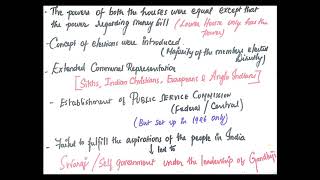 - The powers of both the houses were equal except that
the power regarding money bill (Lower House only has the
power)
- Concept of elections were introduced
(Majority of the members elected
Directly)
- Extended Communal Representation
[Sikhs, Indian Christians, European & Anglo Indians]
- Establishment of PUBLIC SERVICE COMMISSION
(Federal / Central)
(But set up in 1926 only)
- Failed to fulfill the aspirations of the people in India
↓ led to
Swaraj / Self government under the leadership of Gandhiji